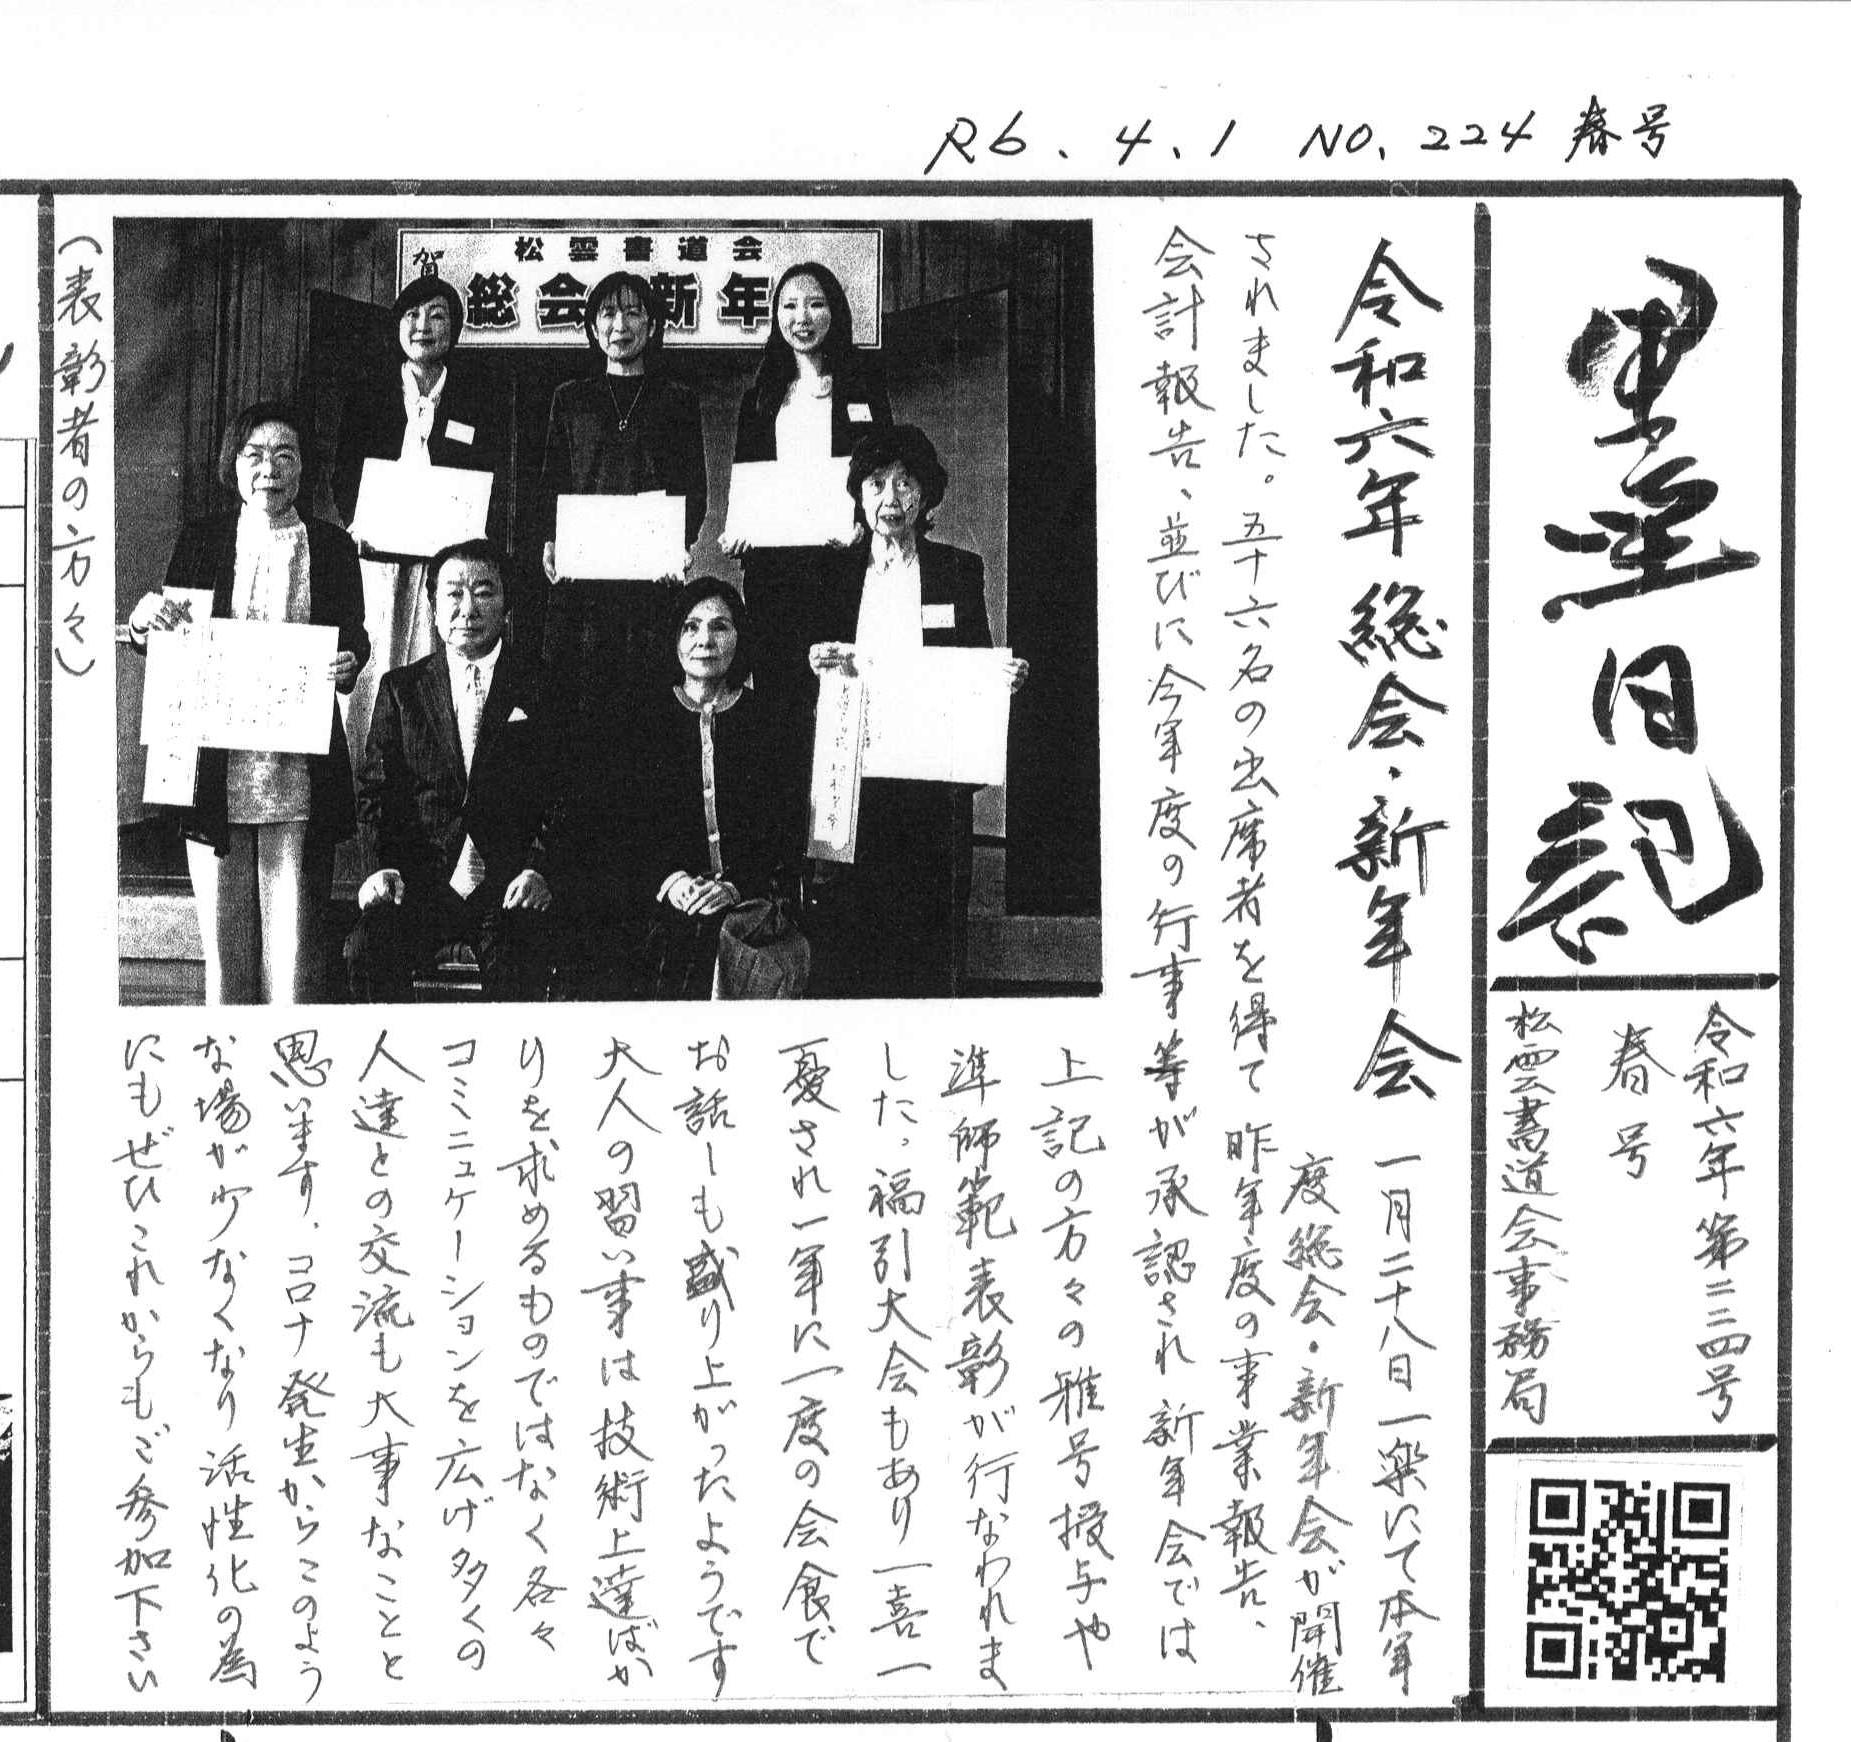 R6.4.1 NO.224 春号
墨翌日記
令和六年 第二二四号
春号
松雲書道会事務局
令和六年 総会・新年会
一月二十八日一楽にて本年
度総会・新年会が開催
されました。五十六名の出席者を得て 昨年度の事業報告、
会計報告、並びに今年度の行事等が承認され 新年会では
上記の方々の雅号授与や
準師範表彰が行なわれま
した。福引大会もあり一喜一
憂され一年に一度の会食で
お話しも盛り上がったようです
大人の習い事は技術上達ばか
りを求めるものではなく各々
コミニュケーションを広げ多くの
人達との交流も大事なことと
思います。コロナ発生からこのよう
な場が少なくなり活性化の為
にもぜひこれからもご参加下さい
賀
松雲書道会
総会 新年
(表彰者の方々)